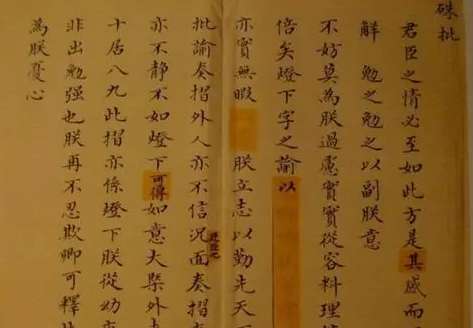 硃批
君臣之情必至如此方是其感而
解 勉之勉之以副朕意
不妨莫為朕過慮實實從容料理
倍矣燈下字之諭以
亦實無暇 朕立志以勤先天
批諭奏摺外人亦不信況面奏摺
亦不靜不如燈下可得如意大槩外
十居八九此摺亦係燈下朕從幼
非出勉强也朕再不忍欺卿可釋
為朕憂心